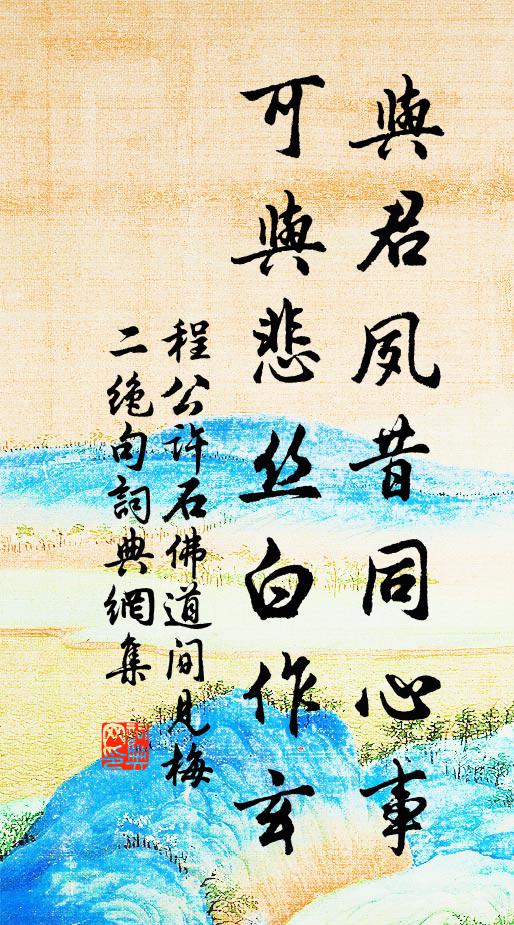 與君夙昔同心事
可與悲丝白作玄
程公许石佛道间见梅
二絶句詞典網集